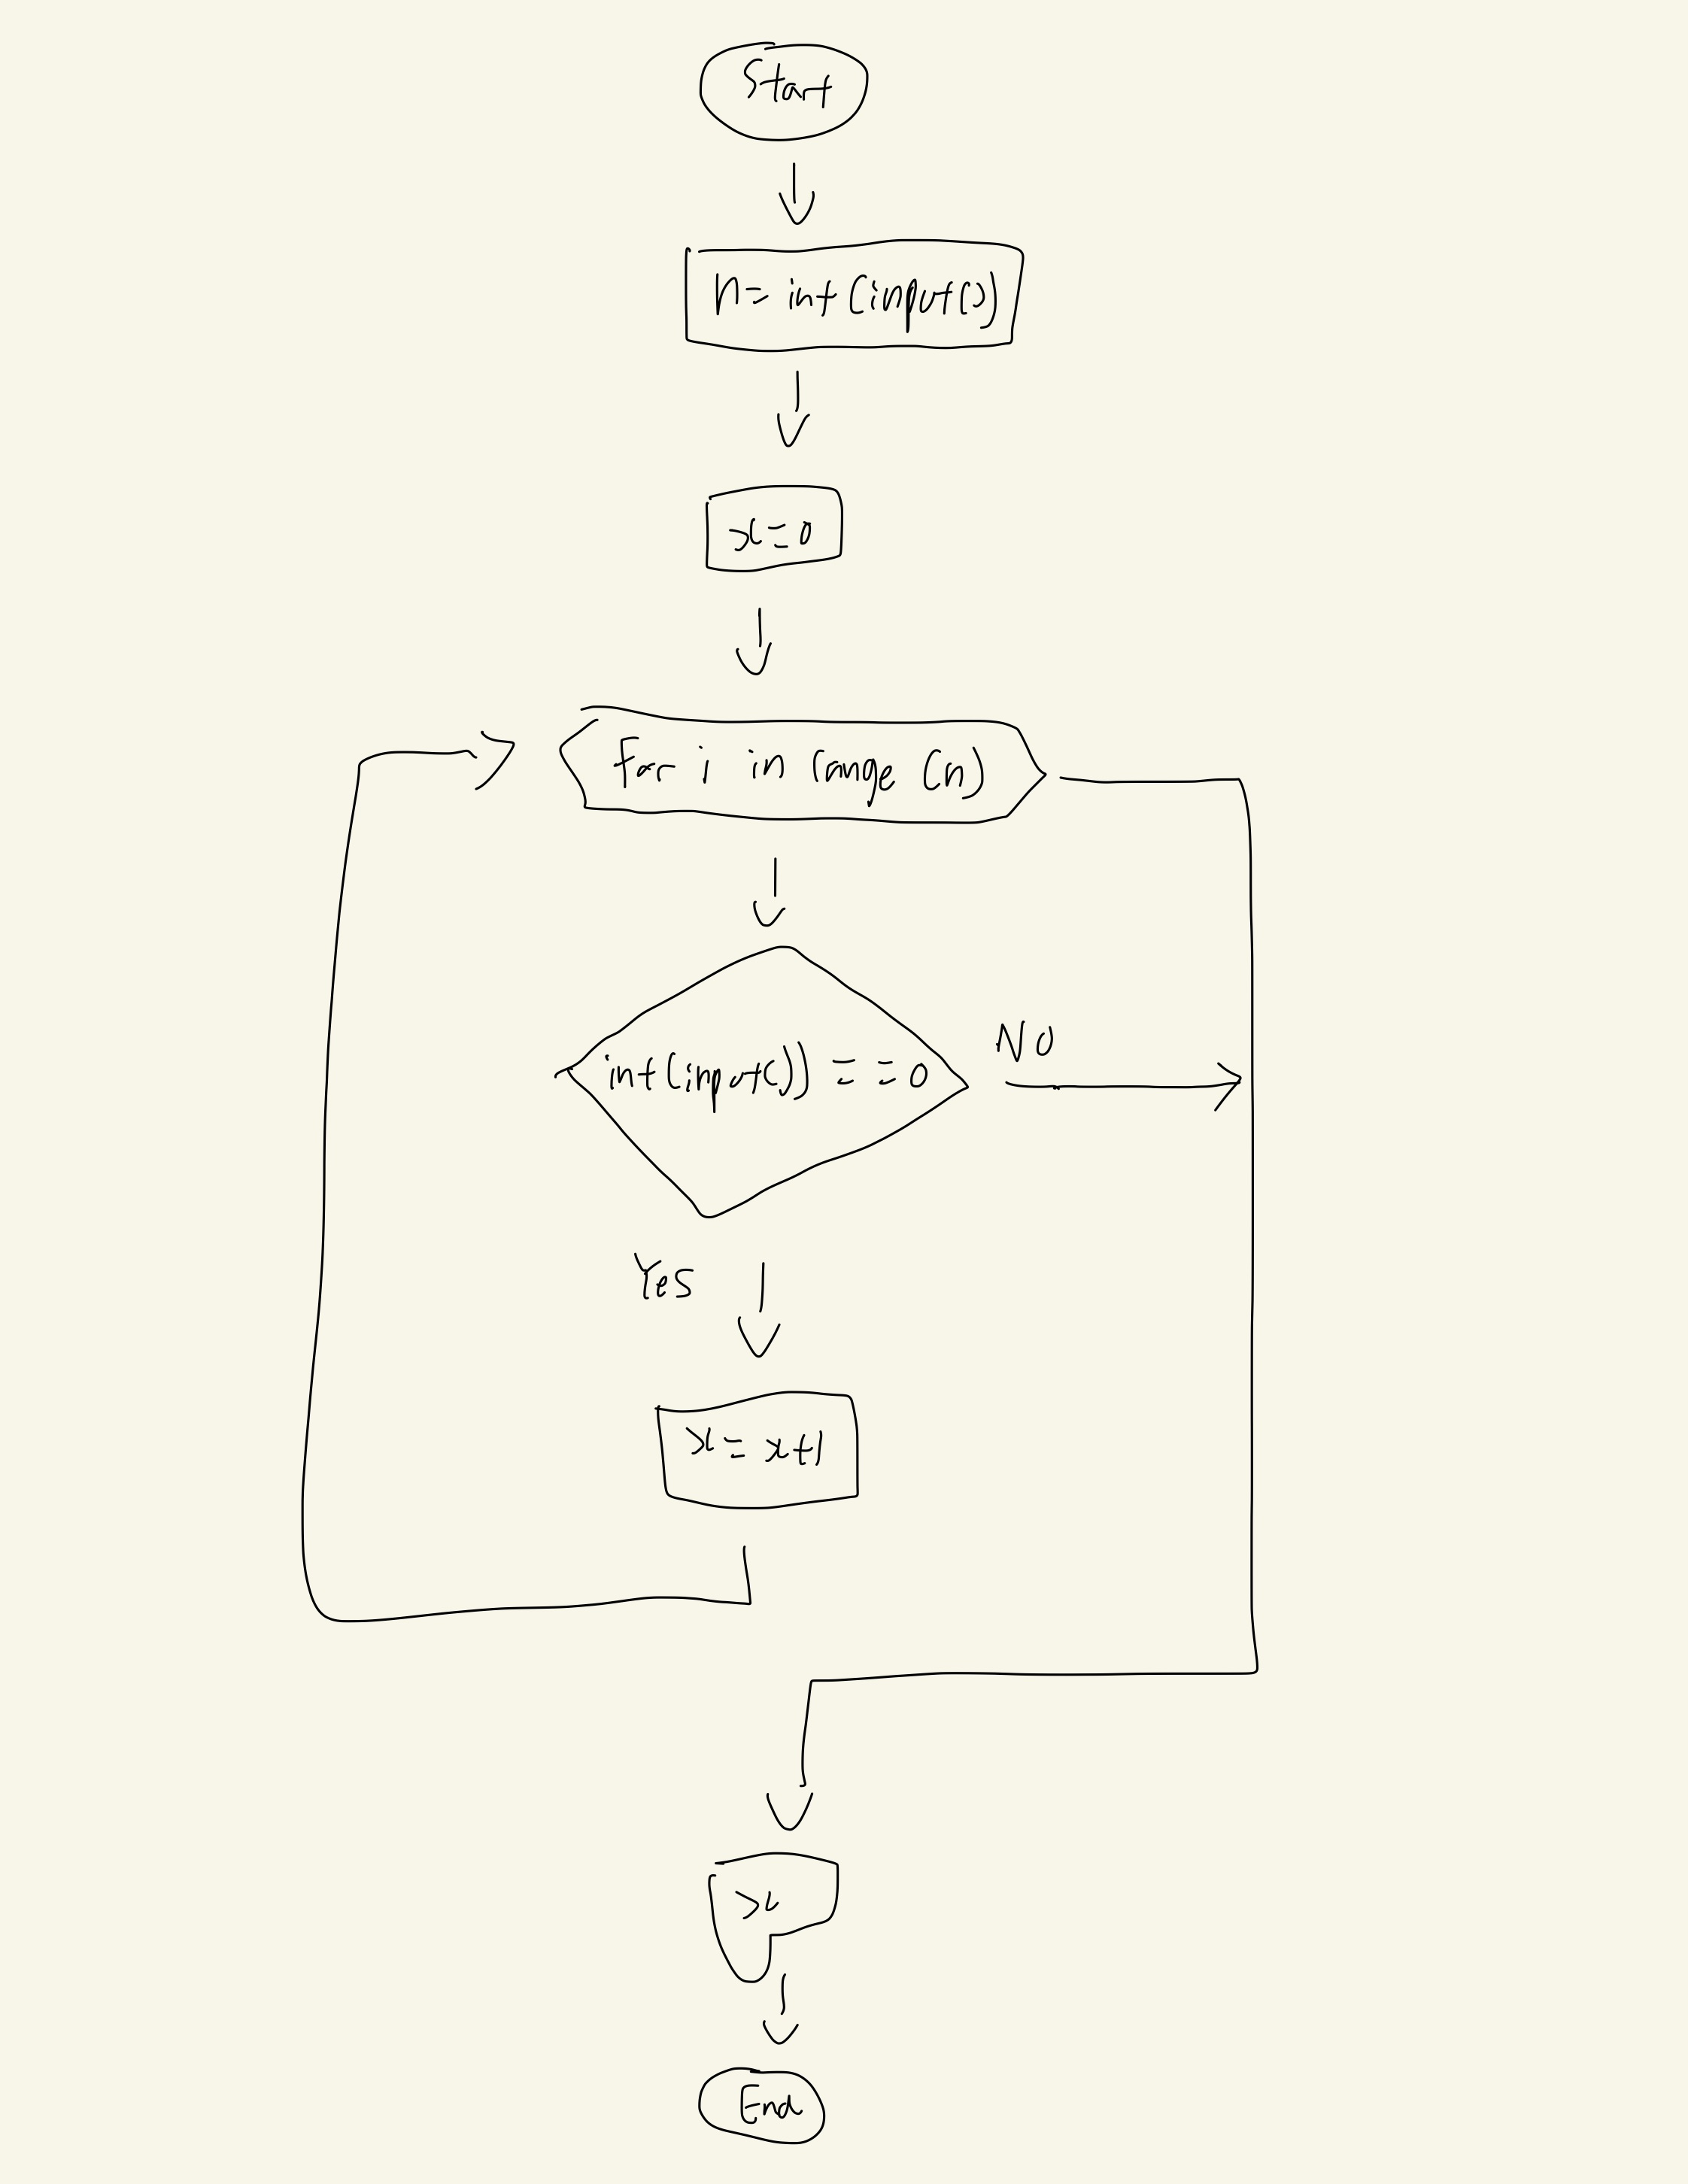 Start
n = int(input())
x = 0
for i in range (n)
int(input()) == 0
No
Yes
x = x+1
x
End